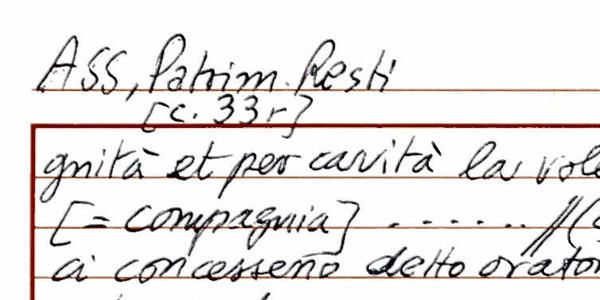 ASS, Patrim. Resti
[c. 33r]
gnità et per carità la
[= compagnia] ........ //
ci concesseno detto